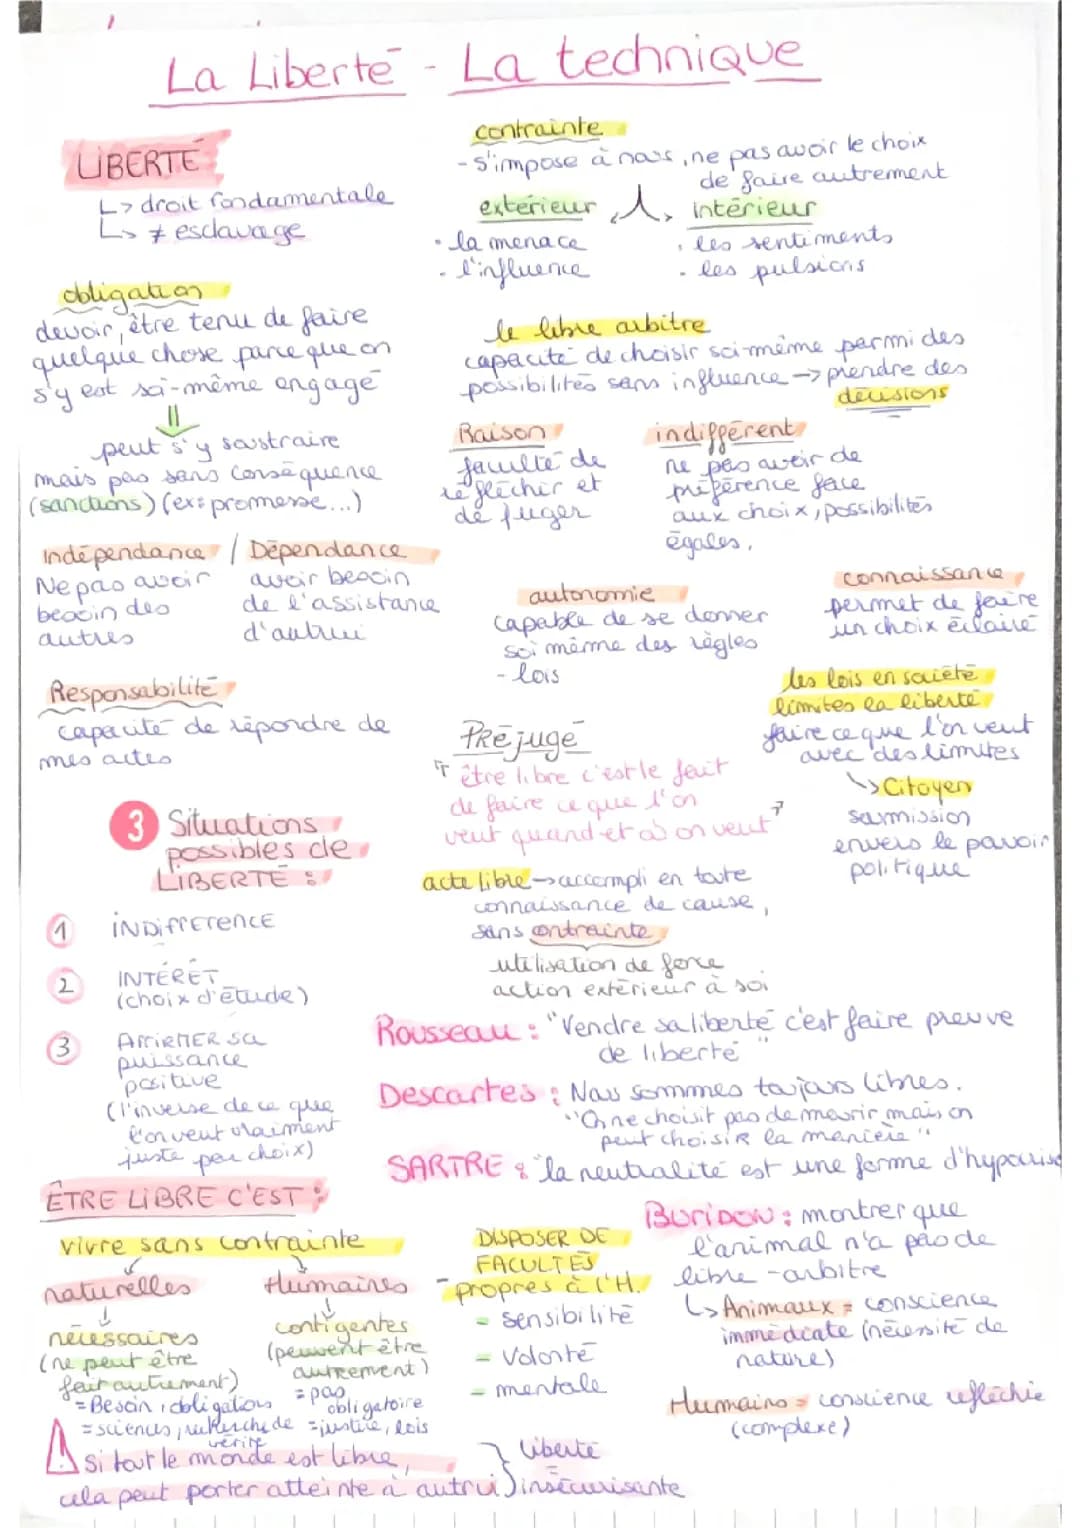 La Liberté - La technique
LIBERTÉ
↳ droit fondamentale
↳ ≠ esclavage
contrainte
- s'impose à nous, ne pas avoir le choix
de faire autrement
extérieur
· la menace
· l'influence
intérieur
· les sentiments
· les pulsions
obligation
devoir, être tenu de faire
quelque chose parce que on
s'y est soi-même engagé
⇓
peut s'y soustraire
mais pas sans conséquence
(sanctions) (ex: promesse...)
le libre arbitre
capacité de choisir soi-même parmi des
possibilités sans influence → prendre des
décisions
Raison
faculté de
réfléchir et
de juger
indifférent
ne pas avoir de
préférence face
aux choix, possibilités
égales.
Indépendance / Dépendance
Ne pas avoir
besoin des
autres
avoir besoin
de l'assistance
d'autrui
autonomie
capable de se donner
soi même des règles
- lois
connaissance
permet de faire
un choix éclairé
Responsabilité
capacité de répondre de
mes actes
Préjugé
être libre c'est le fait
de faire ce que l'on
veut quand et où on veut
les lois en société
limites la liberté
faire ce que l'on veut
avec des limites
↳ Citoyen
soumission
envers le pouvoir
politique
3 Situations
possibles de
LIBERTÉ :
1 INDIFFERENCE
2 INTÉRÊT
(choix d'étude)
3 AFFIRMER sa
puissance
positive
(l'inverse de ce que
l'on veut vraiment
juste par choix)
acte libre → accompli en toute
connaissance de cause,
sans contrainte
utilisation de force
action extérieur à soi
Rousseau : "Vendre sa liberté c'est faire preuve
de liberté"
Descartes : Nous sommes toujours libres.
"On ne choisit pas de mourir mais on
peut choisir la manière"
SARTRE : "la neutralité est une forme d'hypocrisie
ÊTRE LIBRE C'EST :
vivre sans contrainte
naturelles
↓
nécessaires
(ne peut être
fait autrement)
= Besoin, obligations
= sciences, recherche de
vérité
Humaines
↓
contigentes
(peuvent être
autrement)
= pas
obligatoire
= justice, lois
DISPOSER DE
FACULTÉS
propres à l'H.
- sensibilité
- volonté
- mentale
Buridon : montrer que
l'animal n'a pas de
libre-arbitre
↳ Animaux = conscience
immédiate (nécessité de
nature)
Humains = conscience réfléchie
(complexe)
⚠ si tout le monde est libre,
cela peut porter atteinte à autrui
liberté
=
insécurisante